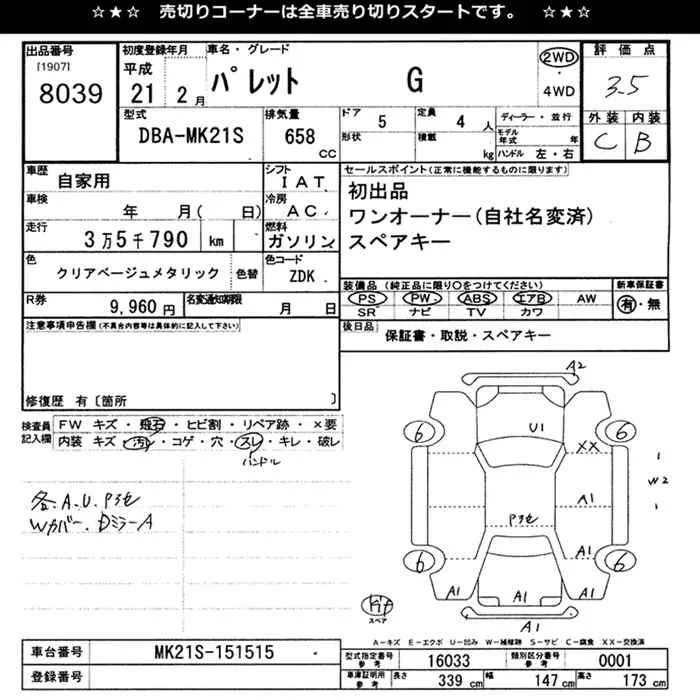 ☆★☆ 売切りコーナーは全車売り切りスタートです。 ☆★☆
出品番号 初度登録年月 車名・グレード 評価点
[1907] 平成 パレット G 2WD 3.5
8039 21 2月 4WD
型式 排気量 ドア 5 定員 4人 ディーラー・並行 外装 内装
DBA-MK21S 658 cc 形状 積載 kg モデル年式 年 C B
ハンドル 左・右
車歴 自家用 シフト IAT セールスポイント(正常に機能するものに限ります)
車検 年 月( 日) 冷房 AC 初出品
走行 3万5千790 km 燃料 ガソリン ワンオーナー(自社名変済)
スペアキー
色 クリアベージュメタリック 色替 色コード ZDK
装備品(純正品に限り○をつけてください) 新車保証書
R券 9,960円 名変通知期限 月 日 PS PW ABS エアB AW 有・無
SR ナビ TV カワ
注意事項申告欄(不具合内容等は具体的に記入して下さい) 後日品 保証書・取説・スペアキー
修復歴 有〔箇所 〕
検査員記入欄 FW キズ・飛石・ヒビ割・リペア跡・×要
内装 キズ・汚レ・コゲ・穴・スレ・キレ・破レ
ハンドル
各.A.U.Pヨセ
Wカバー.DミラーA
A2
U1
6 6
XX
W2
A1
Pヨセ
A1
6 6
A1 A1 A1
Kit
スペア
A1
A-キズ E-エクボ U-凹み W-補修跡 S-サビ C-腐食 XX-交換済
車台番号 MK21S-151515 型式指定番号 参考 16033 類別区分番号 参考 0001
登録番号 車庫証明用 参考 長さ 339 cm 幅 147 cm 高さ 173 cm